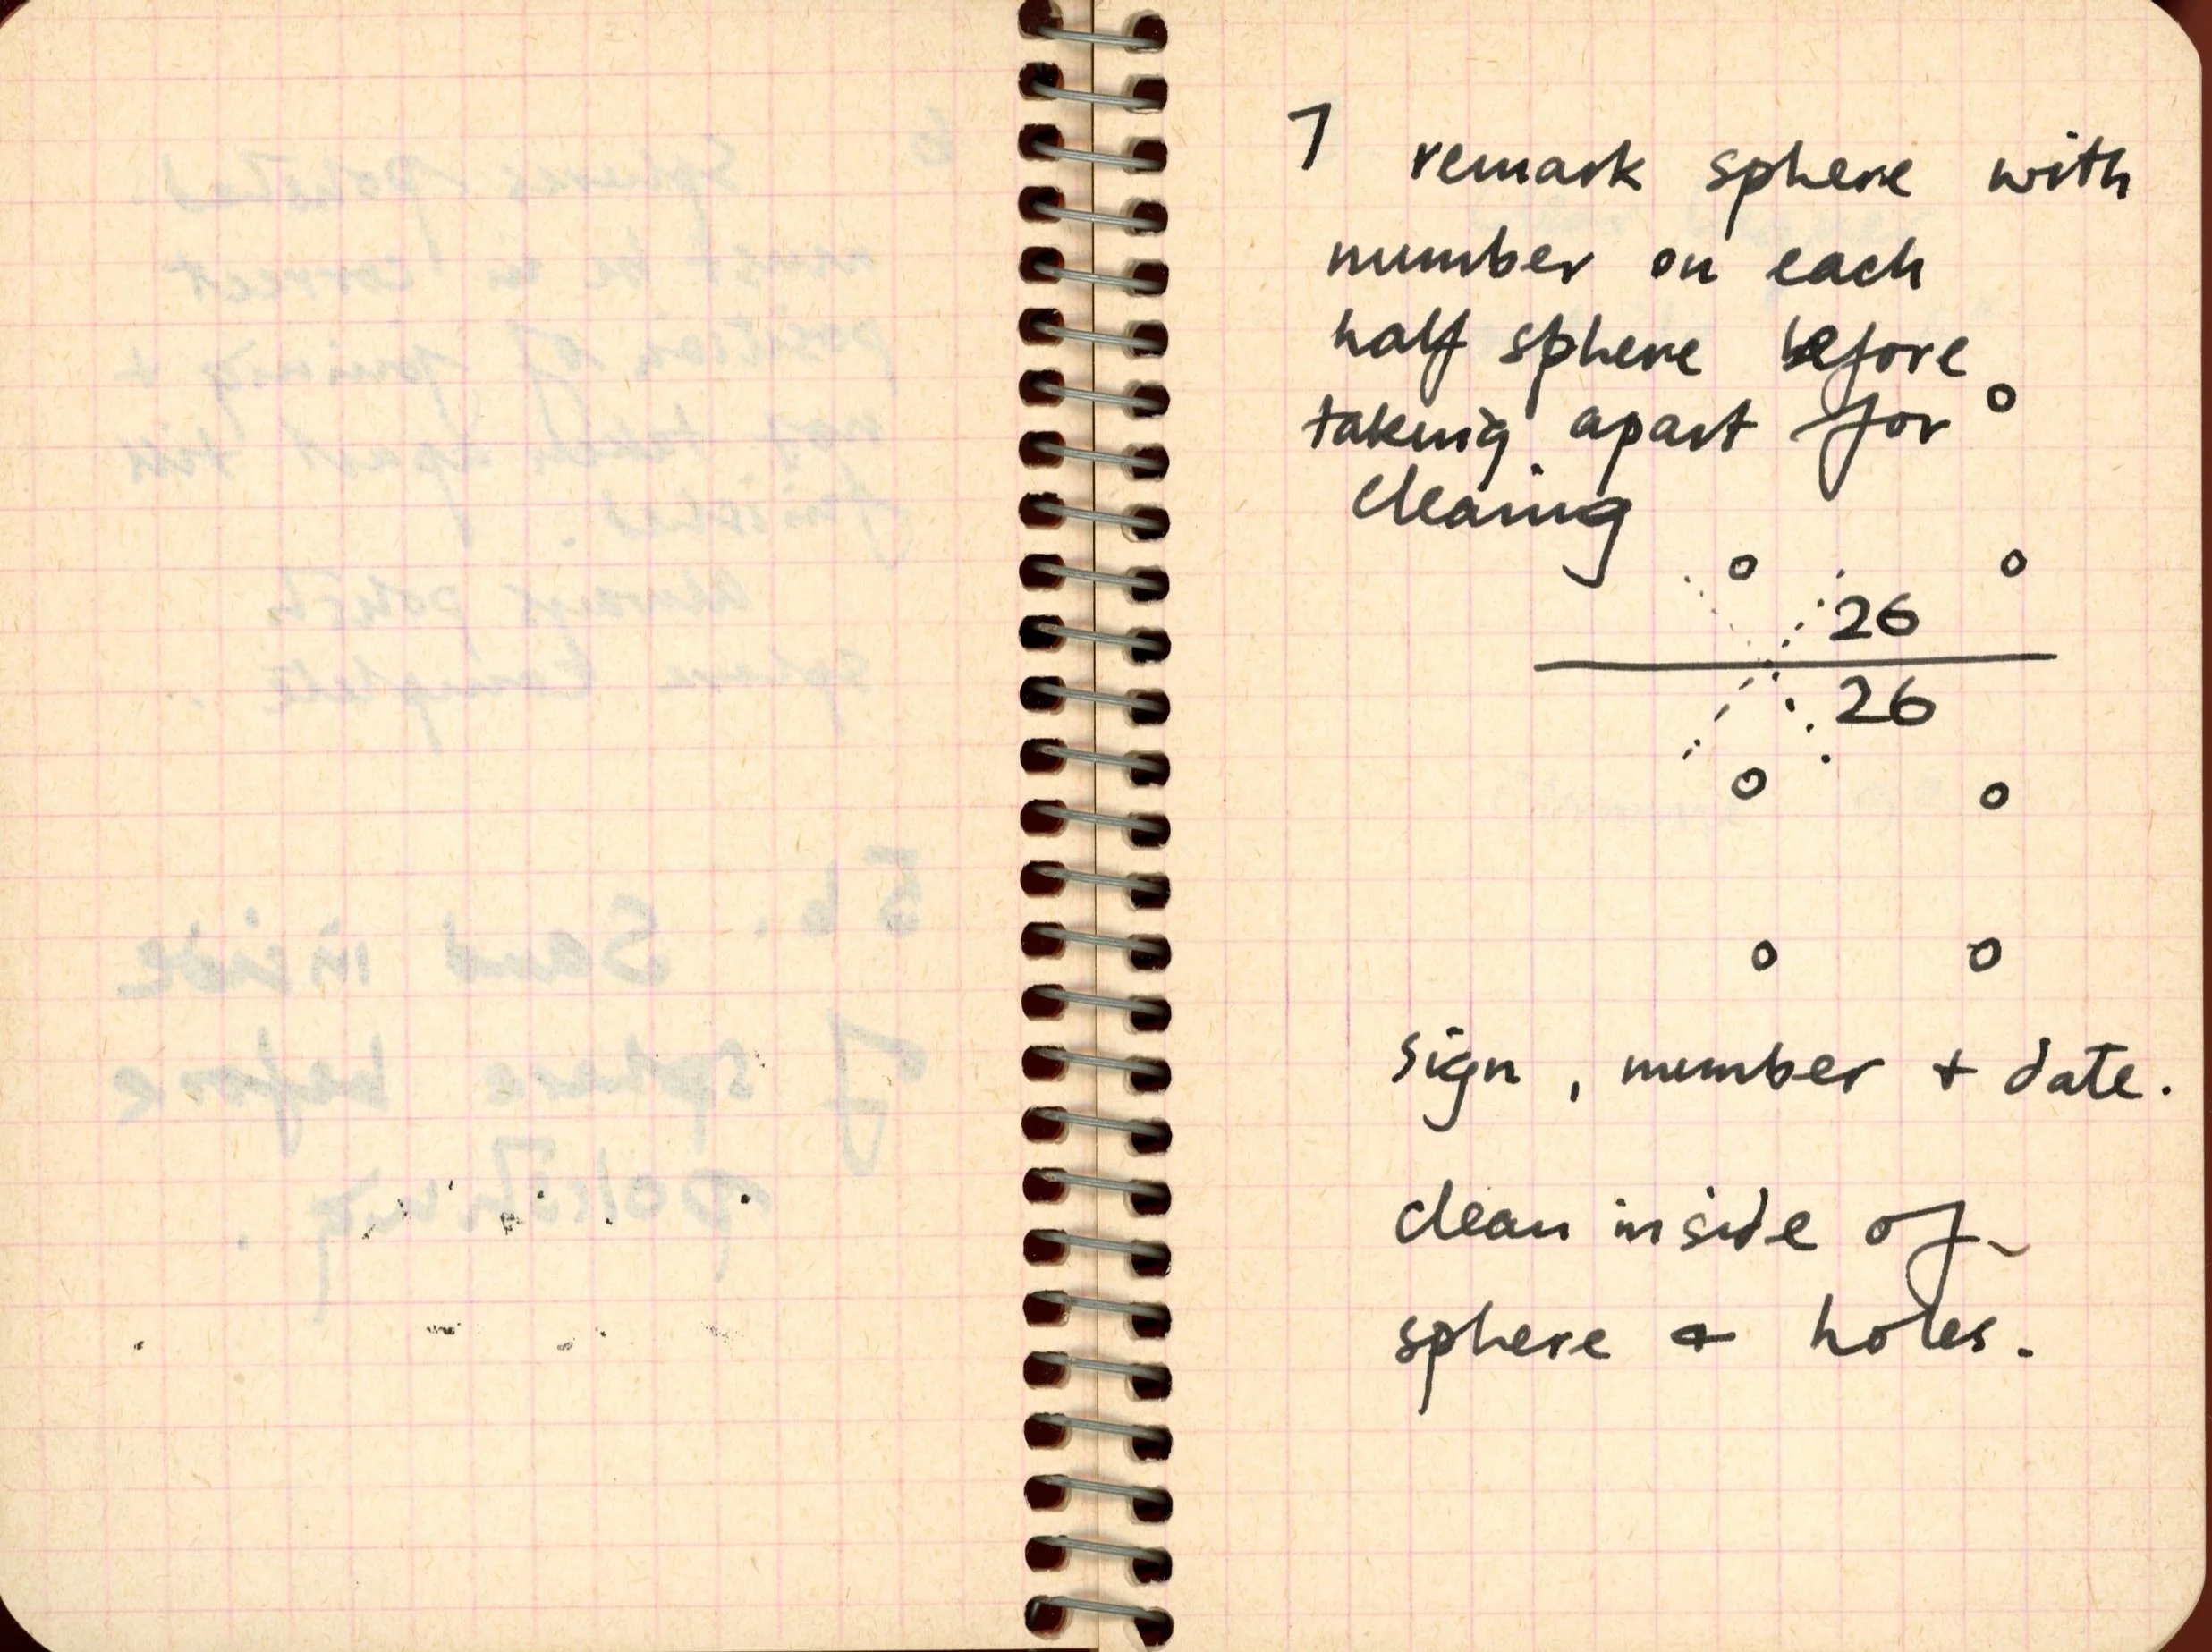 7 remark sphere with
number on each
half sphere before
taking apart for
cleaning
26
26
sign, number + date.
clean inside of
sphere + holes.